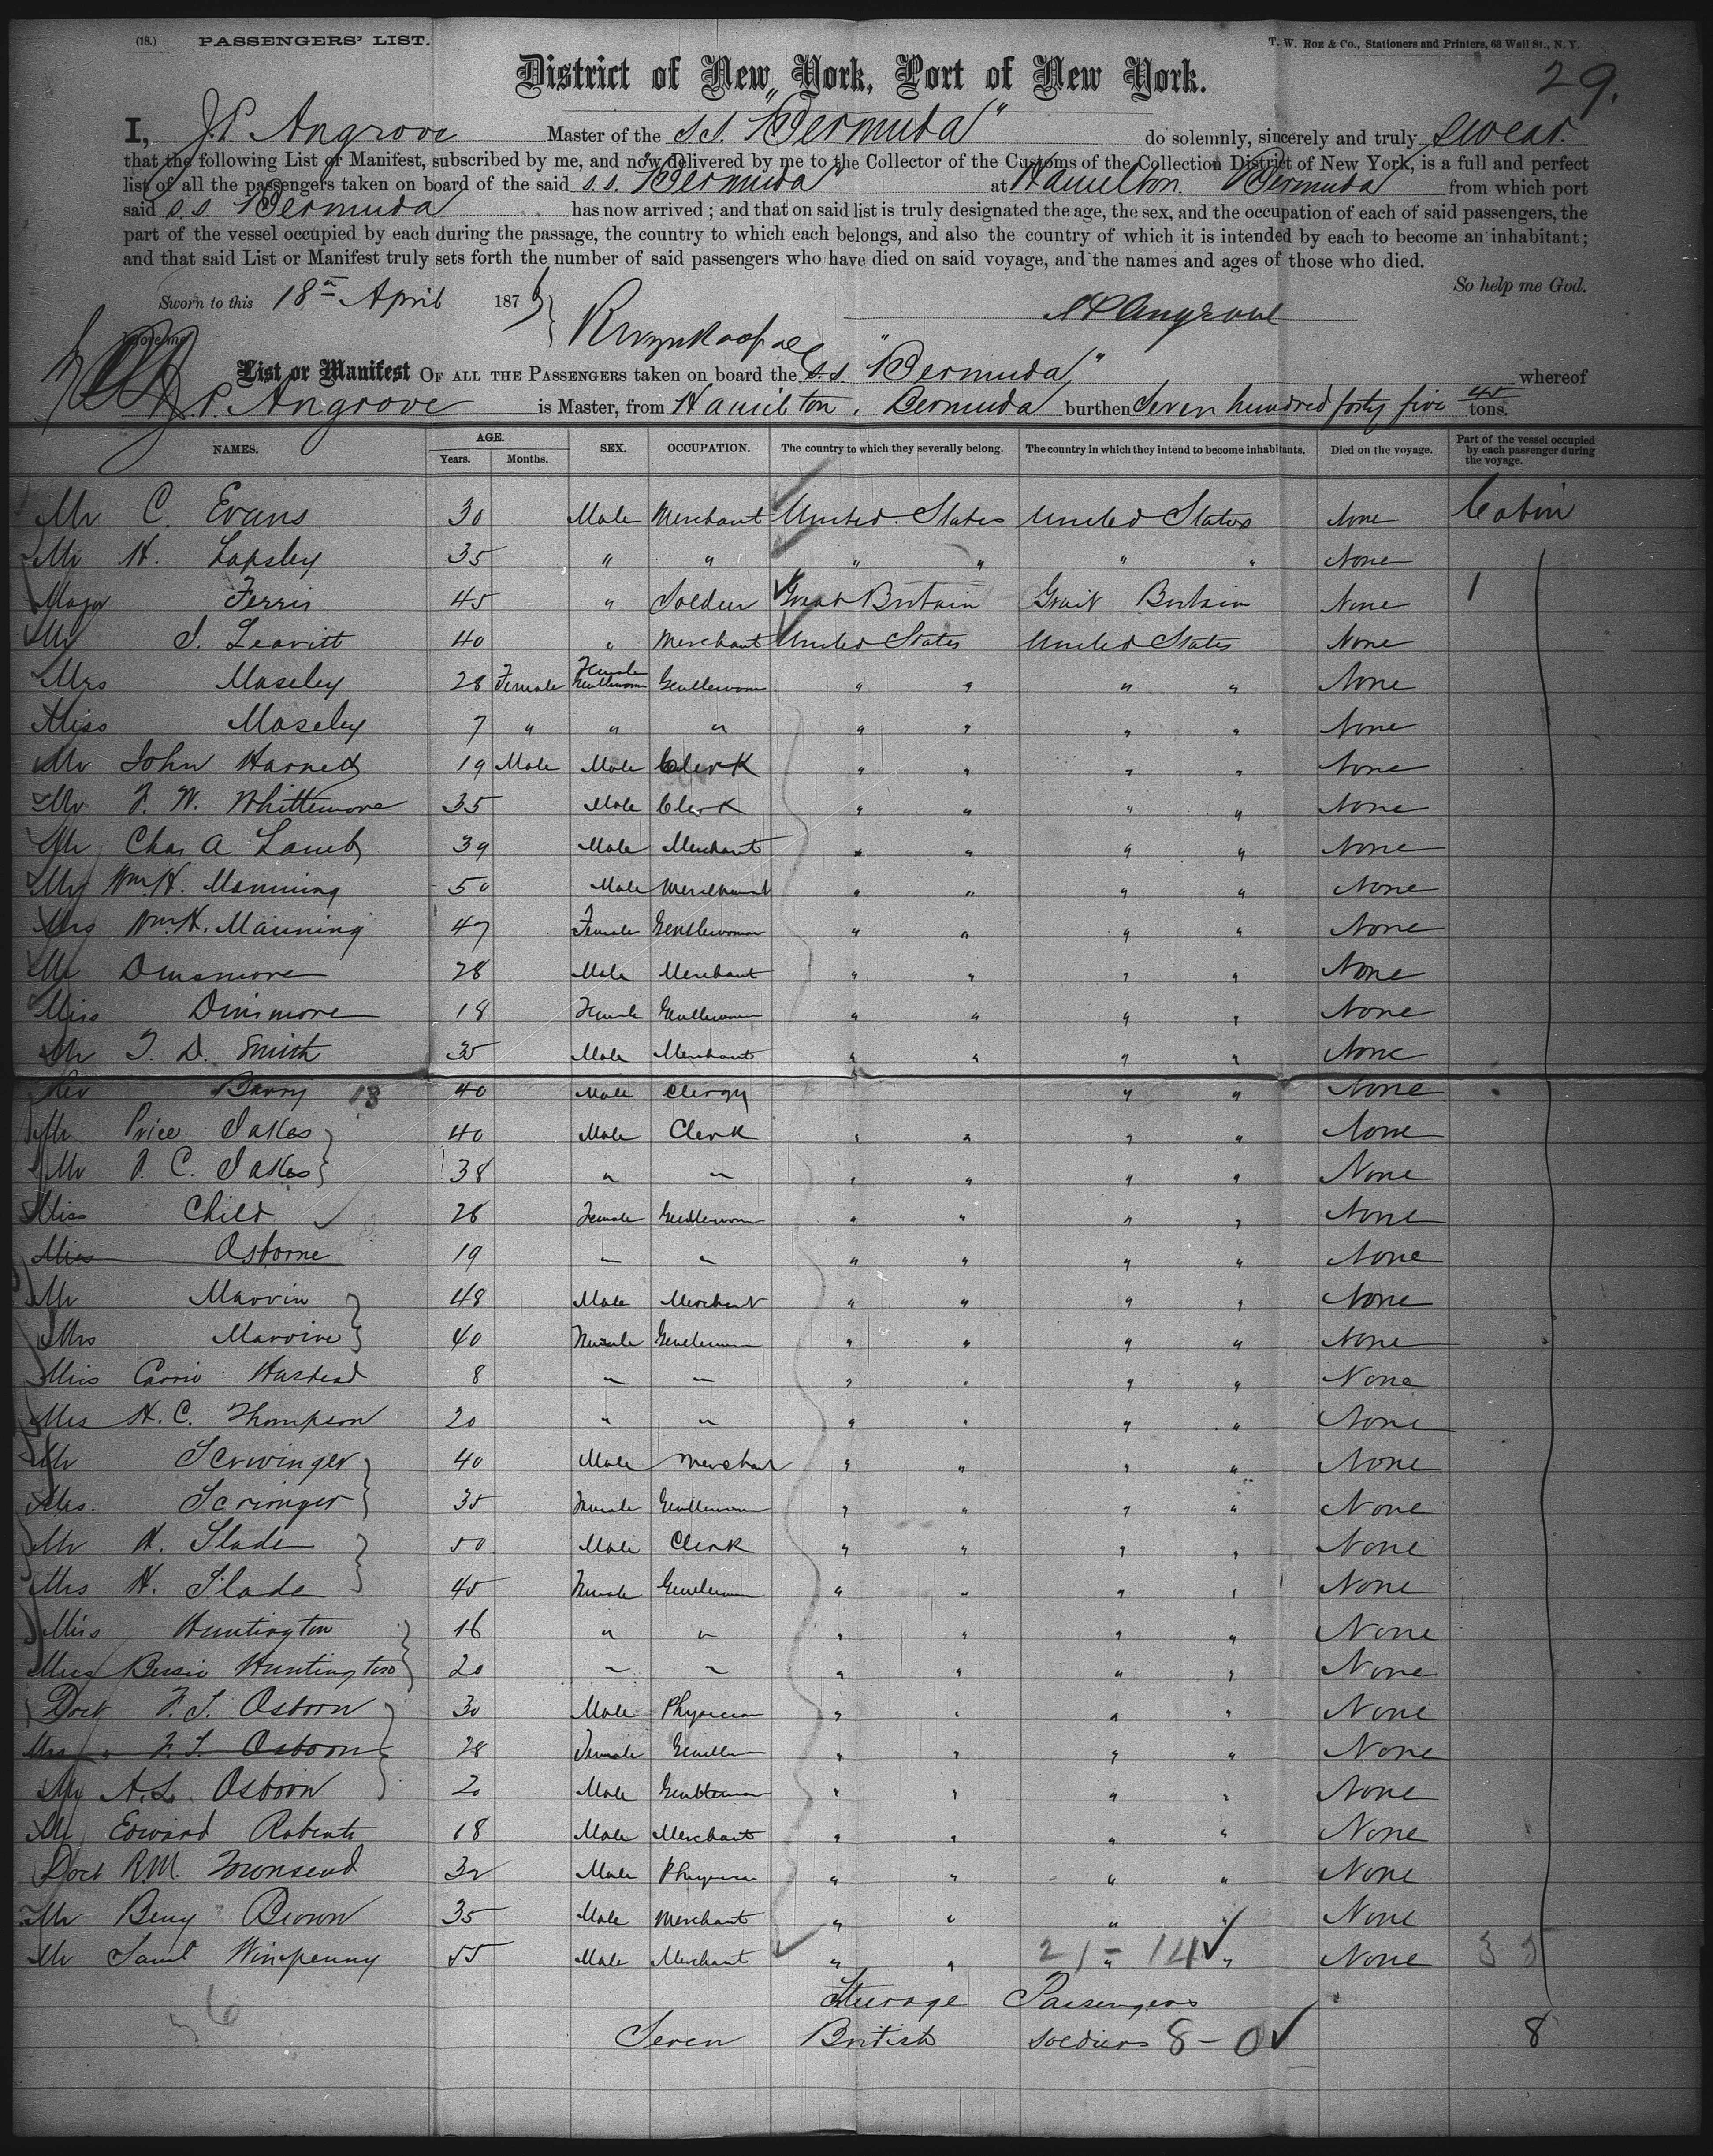 (18.) PASSENGERS' LIST.
T. W. Roe & Co., Stationers and Printers, 63 Wall St., N. Y.
29.
District of New York, Port of New York.
I, J.P. Angrove Master of the S.S. "Bermuda" do solemnly, sincerely and truly swear.
that the following List or Manifest, subscribed by me, and now delivered by me to the Collector of the Customs of the Collection District of New York, is a full and perfect
list of all the passengers taken on board of the said s.s. "Bermuda" at Hamilton. Bermuda from which port
said s.s Bermuda has now arrived; and that on said list is truly designated the age, the sex, and the occupation of each of said passengers, the
part of the vessel occupied by each during the passage, the country to which each belongs, and also the country of which it is intended by each to become an inhabitant;
and that said List or Manifest truly sets forth the number of said passengers who have died on said voyage, and the names and ages of those who died.
So help me God.
Sworn to this 18th April 187
J P Angrove
before me
List or Manifest OF ALL THE PASSENGERS taken on board the S.S. "Bermuda" whereof
J.P. Angrove is Master, from Hamilton, Bermuda burthen Seven hundred forty five 45 tons.
NAMES. AGE. Years. Months. SEX. OCCUPATION. The country to which they severally belong. The country in which they intend to become inhabitants. Died on the voyage. Part of the vessel occupied by each passenger during the voyage.
Mr C. Evans 30 Male Merchant United States United States None Cabin
Mr H. Lapsley 35 " " " " " " None
Major Ferris 45 " Soldier Great Britain Great Britain None 1
Mr S. Leavitt 40 " Merchant United States United States None
Mrs Maseley 28 Female Female Gentlewom Gentlewom " " " " None
Miss Maseley 7 " " " " " " " None
Mr John Harnett 19 Male Male Clerk " " " " None
Mr F. W. Whittemore 35 Male Clerk " " " " None
Mr Chas A Lamb 39 Male Merchant " " " " None
Mr Wm H. Manning 50 Male Merchant " " " " None
Mrs Wm H. Manning 47 Female Gentlewoman " " " " None
Mr Dinsmore 28 Male Merchant " " " " None
Miss Dinsmore 18 Female Gentlewom " " " " None
Mr T. D. Smith 35 Male Merchant " " " " None
Rev Barry 13 40 Male Clergy " " None
Mr Price Jakes 40 Male Clerk " " " " None
Mr F. C. Jakes 38 " " " " " " None
Miss Child 26 Female Gentlewom " " " " None
Miss Osborne 19 " " " " " " None
Mr Marvin 48 Male Merchant " " " " None
Mrs Marvin 40 Female Gentlewom " " " " None
Miss Carrie Hastead 8 " " " " " " None
Mrs H. C. Thompson 20 " " " " " " None
Mr Scrwinger 40 Male Merchant " " " " None
Mrs. Scrimger 35 Female Gentlewom " " " " None
Mr H. Slade 50 Male Clerk " " " " None
Mrs H. Slade 45 Female Gentlewom " " " " None
Miss Huntington 16 " " " " " " None
Miss Bessie Huntington 20 " " " " " " None
Doct F. S. Osborn 30 Male Physician " " " " None
Mrs " F. S. Osborn 28 Female Gentlew " " " " None
Mr A. L. Osborn 20 Male Gentleman " " " " None
Mr Edward Roberts 18 Male Merchant " " " " None
Doct R.M. Townsend 32 Male Physician " " " " None
Mr Benj Brown 35 Male Merchant " " " " None
Mr Saml Winpenny 55 Male Merchant " " 21 - 14 ✓ " " None 35
Steerage Passengers
Seven British soldiers 8 - 0 ✓ 8